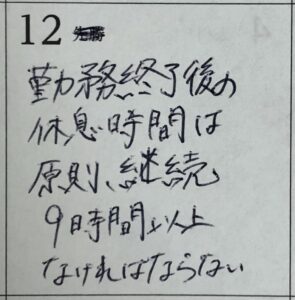 12 先勝
勤務終了後の
休息時間は
原則、継続
9時間以上
なければならない